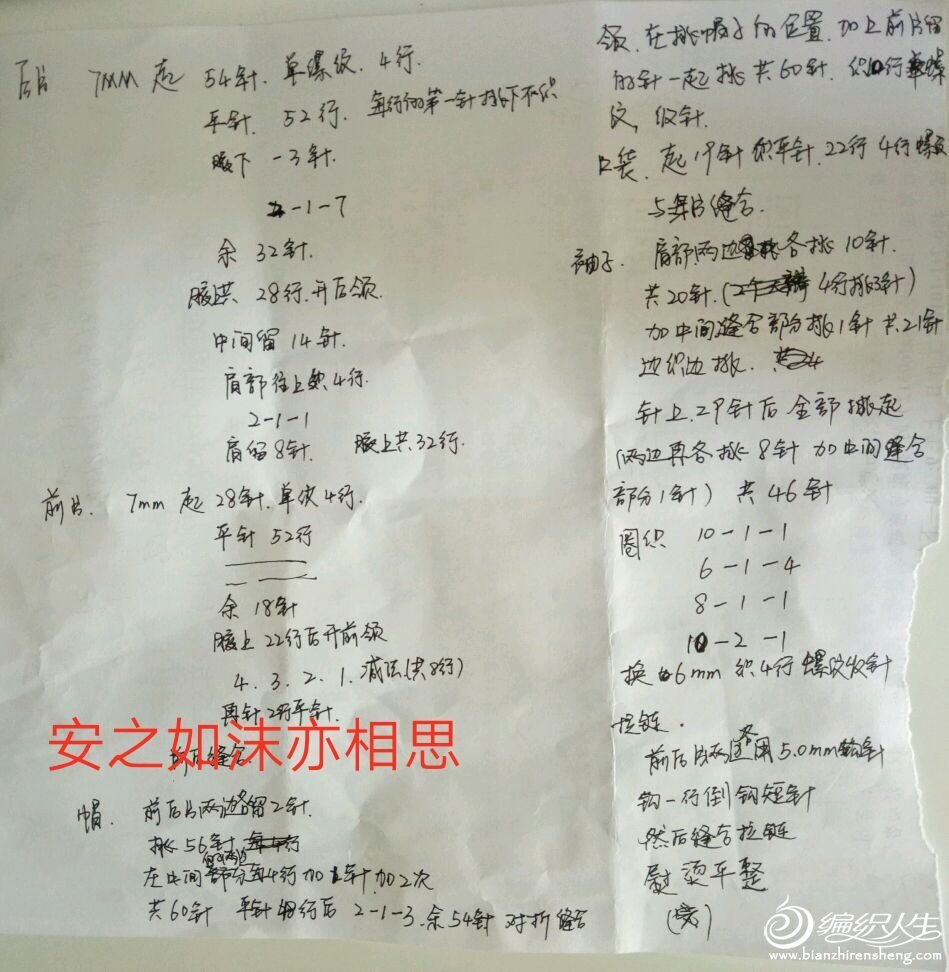 后片 7mm 起 54针.单螺纹.4行.
平针. 52行. 每行的第一针挑下不织
腋下 -3针.
2-1-7
余 32针.
腋上共 28行.开后领.
中间留 14针.
肩部往上织4行.
2-1-1
肩留8针. 腋上共32行.
前片. 7mm 起 28针.单纹4行.
平针 52行
余 18针
腋上 22行后开前领
4.3.2.1.减法(共8行)
再针2行平针.
前后缝合.
安之如沫亦相思
帽. 前后片两边各留2针.
挑56针
在中间部分每4行加1针加2次
共60针 平针 行后 2-1-3.余54针 对折缝合
领.在挑帽子的位置.加上前片留
的针一起挑 共60针.织10行单螺
纹,收针.
口袋.起19针织平针.22行 4行螺纹
与前片缝合.
袖子. 肩部两边各挑10针.
共20针.(4行挑3针)
加中间缝合部分挑1针 共21针
边织边挑.
针上29针后 全部挑起
(两边再各挑8针 加中间缝合
部分1针) 共46针
圈织 10-1-1
6-1-4
8-1-1
10-2-1
换6mm 织4行 螺纹收针
拉链.
前后片两边各用5.0mm钩针
钩一行倒钩短针
然后缝合拉链
熨烫平整
(完)
编织人生
www.bianzhirensheng.com